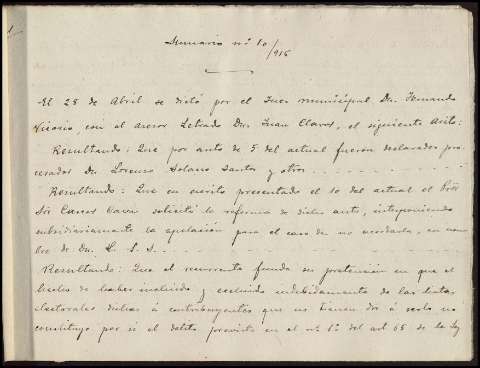 Sumario nº 10/916
El 25 de Abril se dictó por el Juez municipal, Dn. Fernando
Vitorio, con el Asesor Letrado Dn. Juan Claros, el siguiente Auto:
Resultando: Que por auto de 5 del actual fueron declarados pro-
cesados Dn Lorenzo Solano Santos y otros . . . . . . . .
Resultando: Que en escrito presentado el 10 del actual el Pro
solicitó la reforma de dicho auto, interponiendo
subsidiariamente la apelación para el caso de no acordarla, en nom-
bre de Dn. L. S. S. . . . . . . . . .
Resultando: Que el recurrente funda su pretensión en que el
hecho de haber incluido y excluido indebidamente de las listas
electorales dichas á contribuyentes que no tienen dro á serlo no
constituye por si el delito previsto en el nº 1º del art 65 de la ley